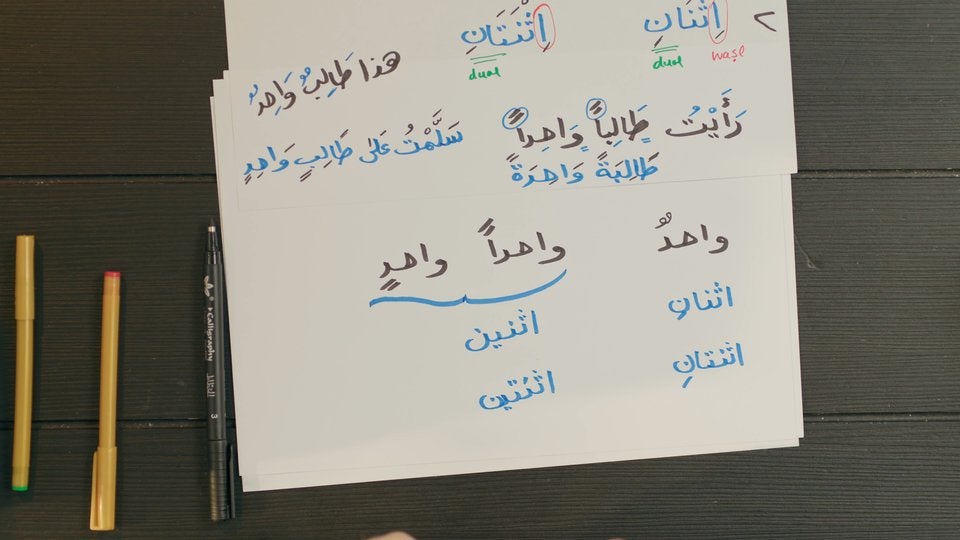 ٢ اِثْنَانِ اِثْنَتَانِ
waṣl dual dual
هذا طَالِبٌ وَاحِدٌ
رَأَيْتُ طَالِباً وَاحِداً
طَالِبَةً وَاحِدَةً
سَلَّمْتُ عَلَى طَالِبٍ وَاحِدٍ
واحدٌ واحداً واحدٍ
اثنانِ اثنين
اثنتانِ اثنتين
Calligraphy 3